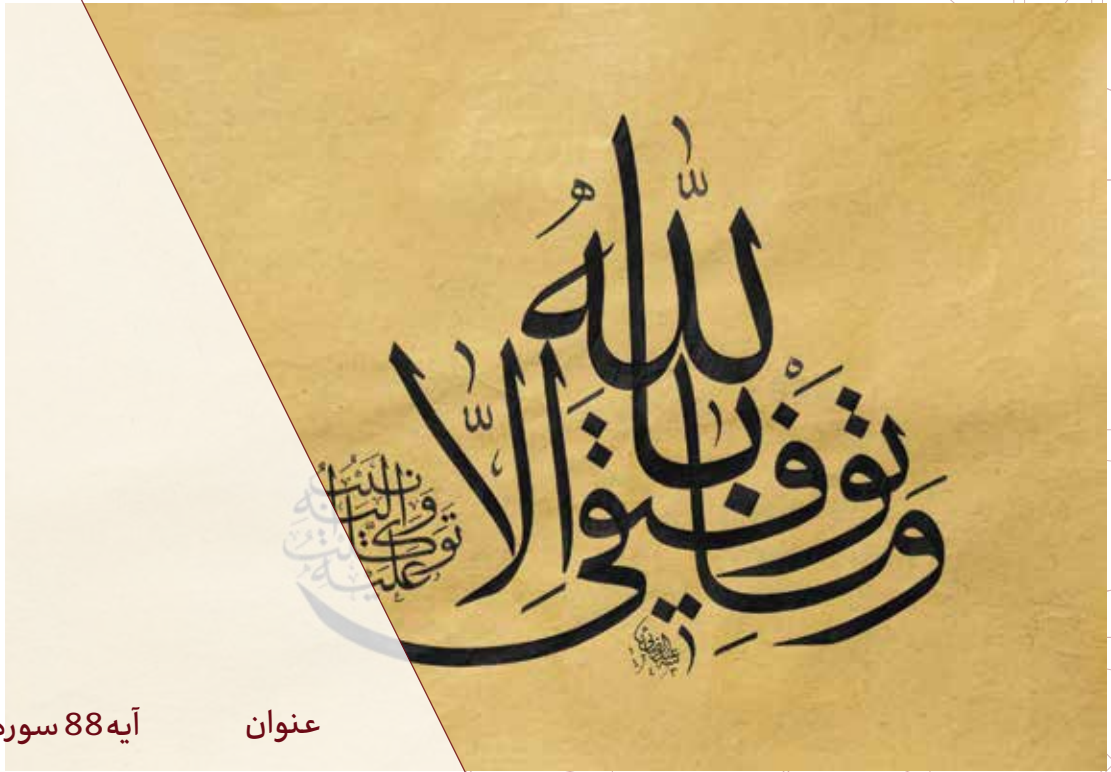 وما توفيقى الّا باللّٰه
عليه توكّلت واليه انيب
عنوان آیه 88 سوره